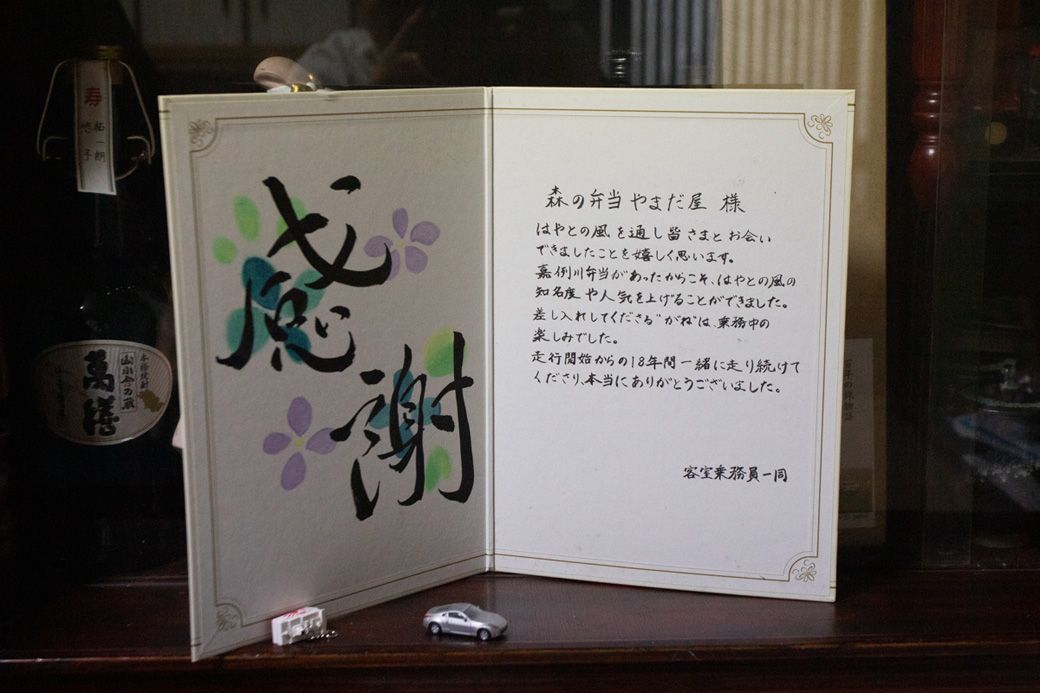 感謝
森の弁当 やまだ屋 様
はやとの風を通し皆さまとお会い
できましたことを嬉しく思います。
嘉例川弁当があったからこそ、はやとの風の
知名度や人気を上げることができました。
差し入れしてくださる"がね"は、乗務中の
楽しみでした。
走行開始からの18年間一緒に走り続けて
くださり、本当にありがとうございました。
客室乗務員一同
寿
拓一朗
悠子
本格焼酎
山小舎の蔵
萬膳